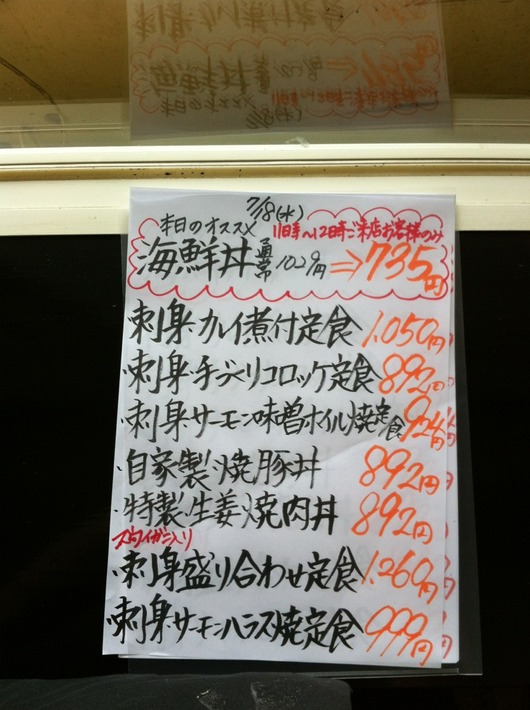 7/18(水)
本日のオススメ 11時～12時ご来店お客様のみ
海鮮丼 通常1029円⇒735円
・刺身・カレイ煮付定食 1,050円
・刺身・手づくりコロッケ定食 892円
・刺身・サーモン味噌ホイル焼定食 924円
・自家製・焼豚丼 892円
・特製・生姜焼肉丼 892円
ズワイガニ入り
・刺身盛り合わせ定食 1,260円
・刺身・サーモンハラス焼定食 999円